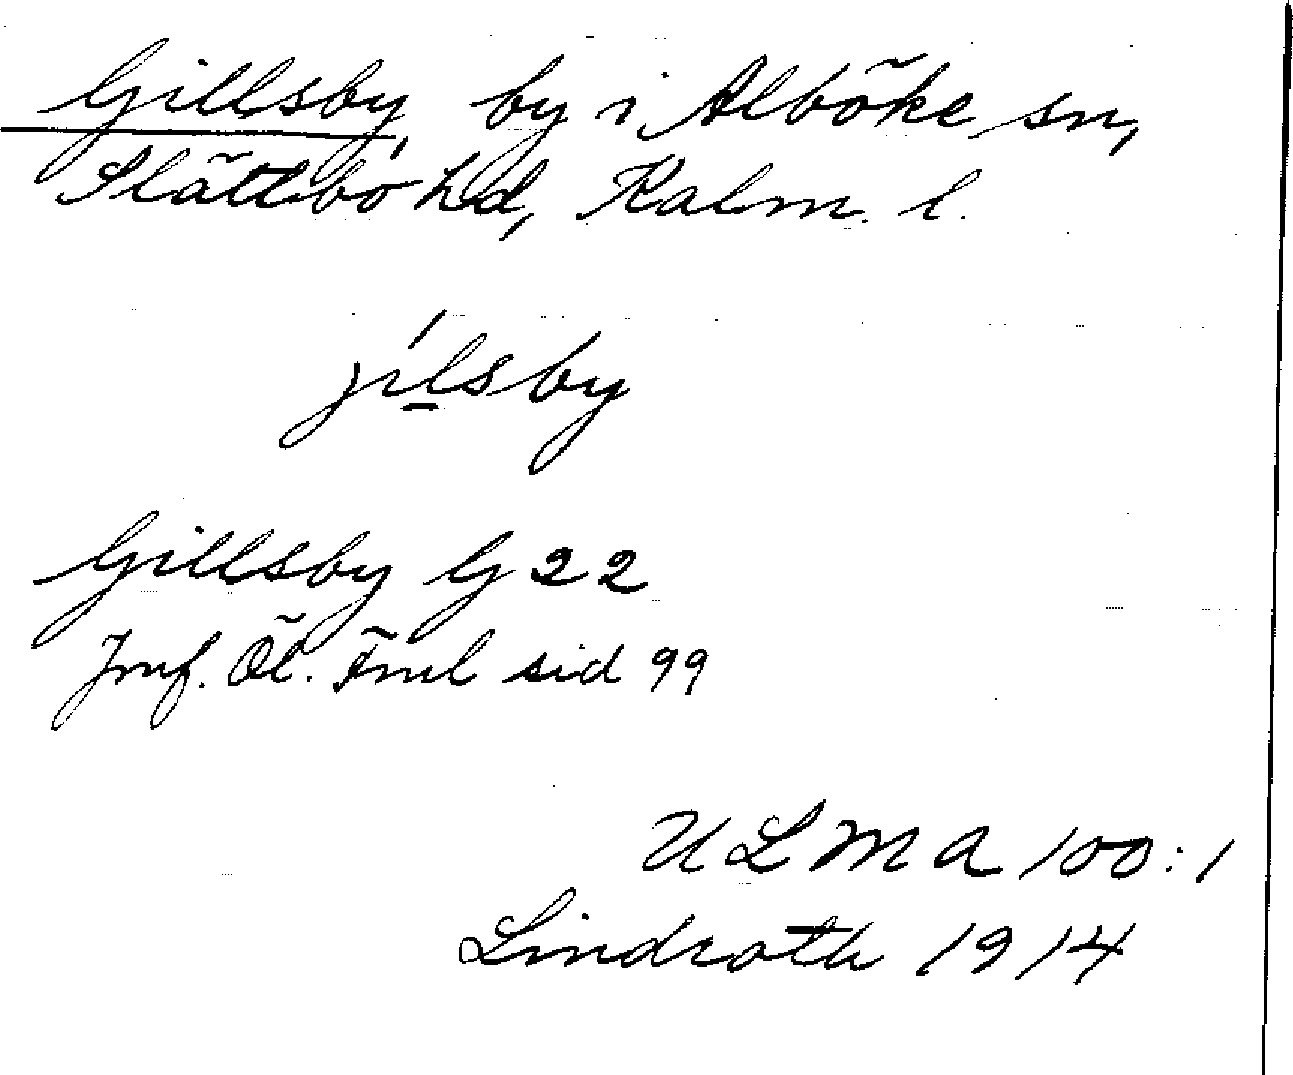 Gillsby, by i Alböke sn,
Slättbo hd, Kalm. l.
jílsby
Gillsby G 22
Jmf. Öl. Fml sid 99
ULMA 100:1
Lindroth 1914